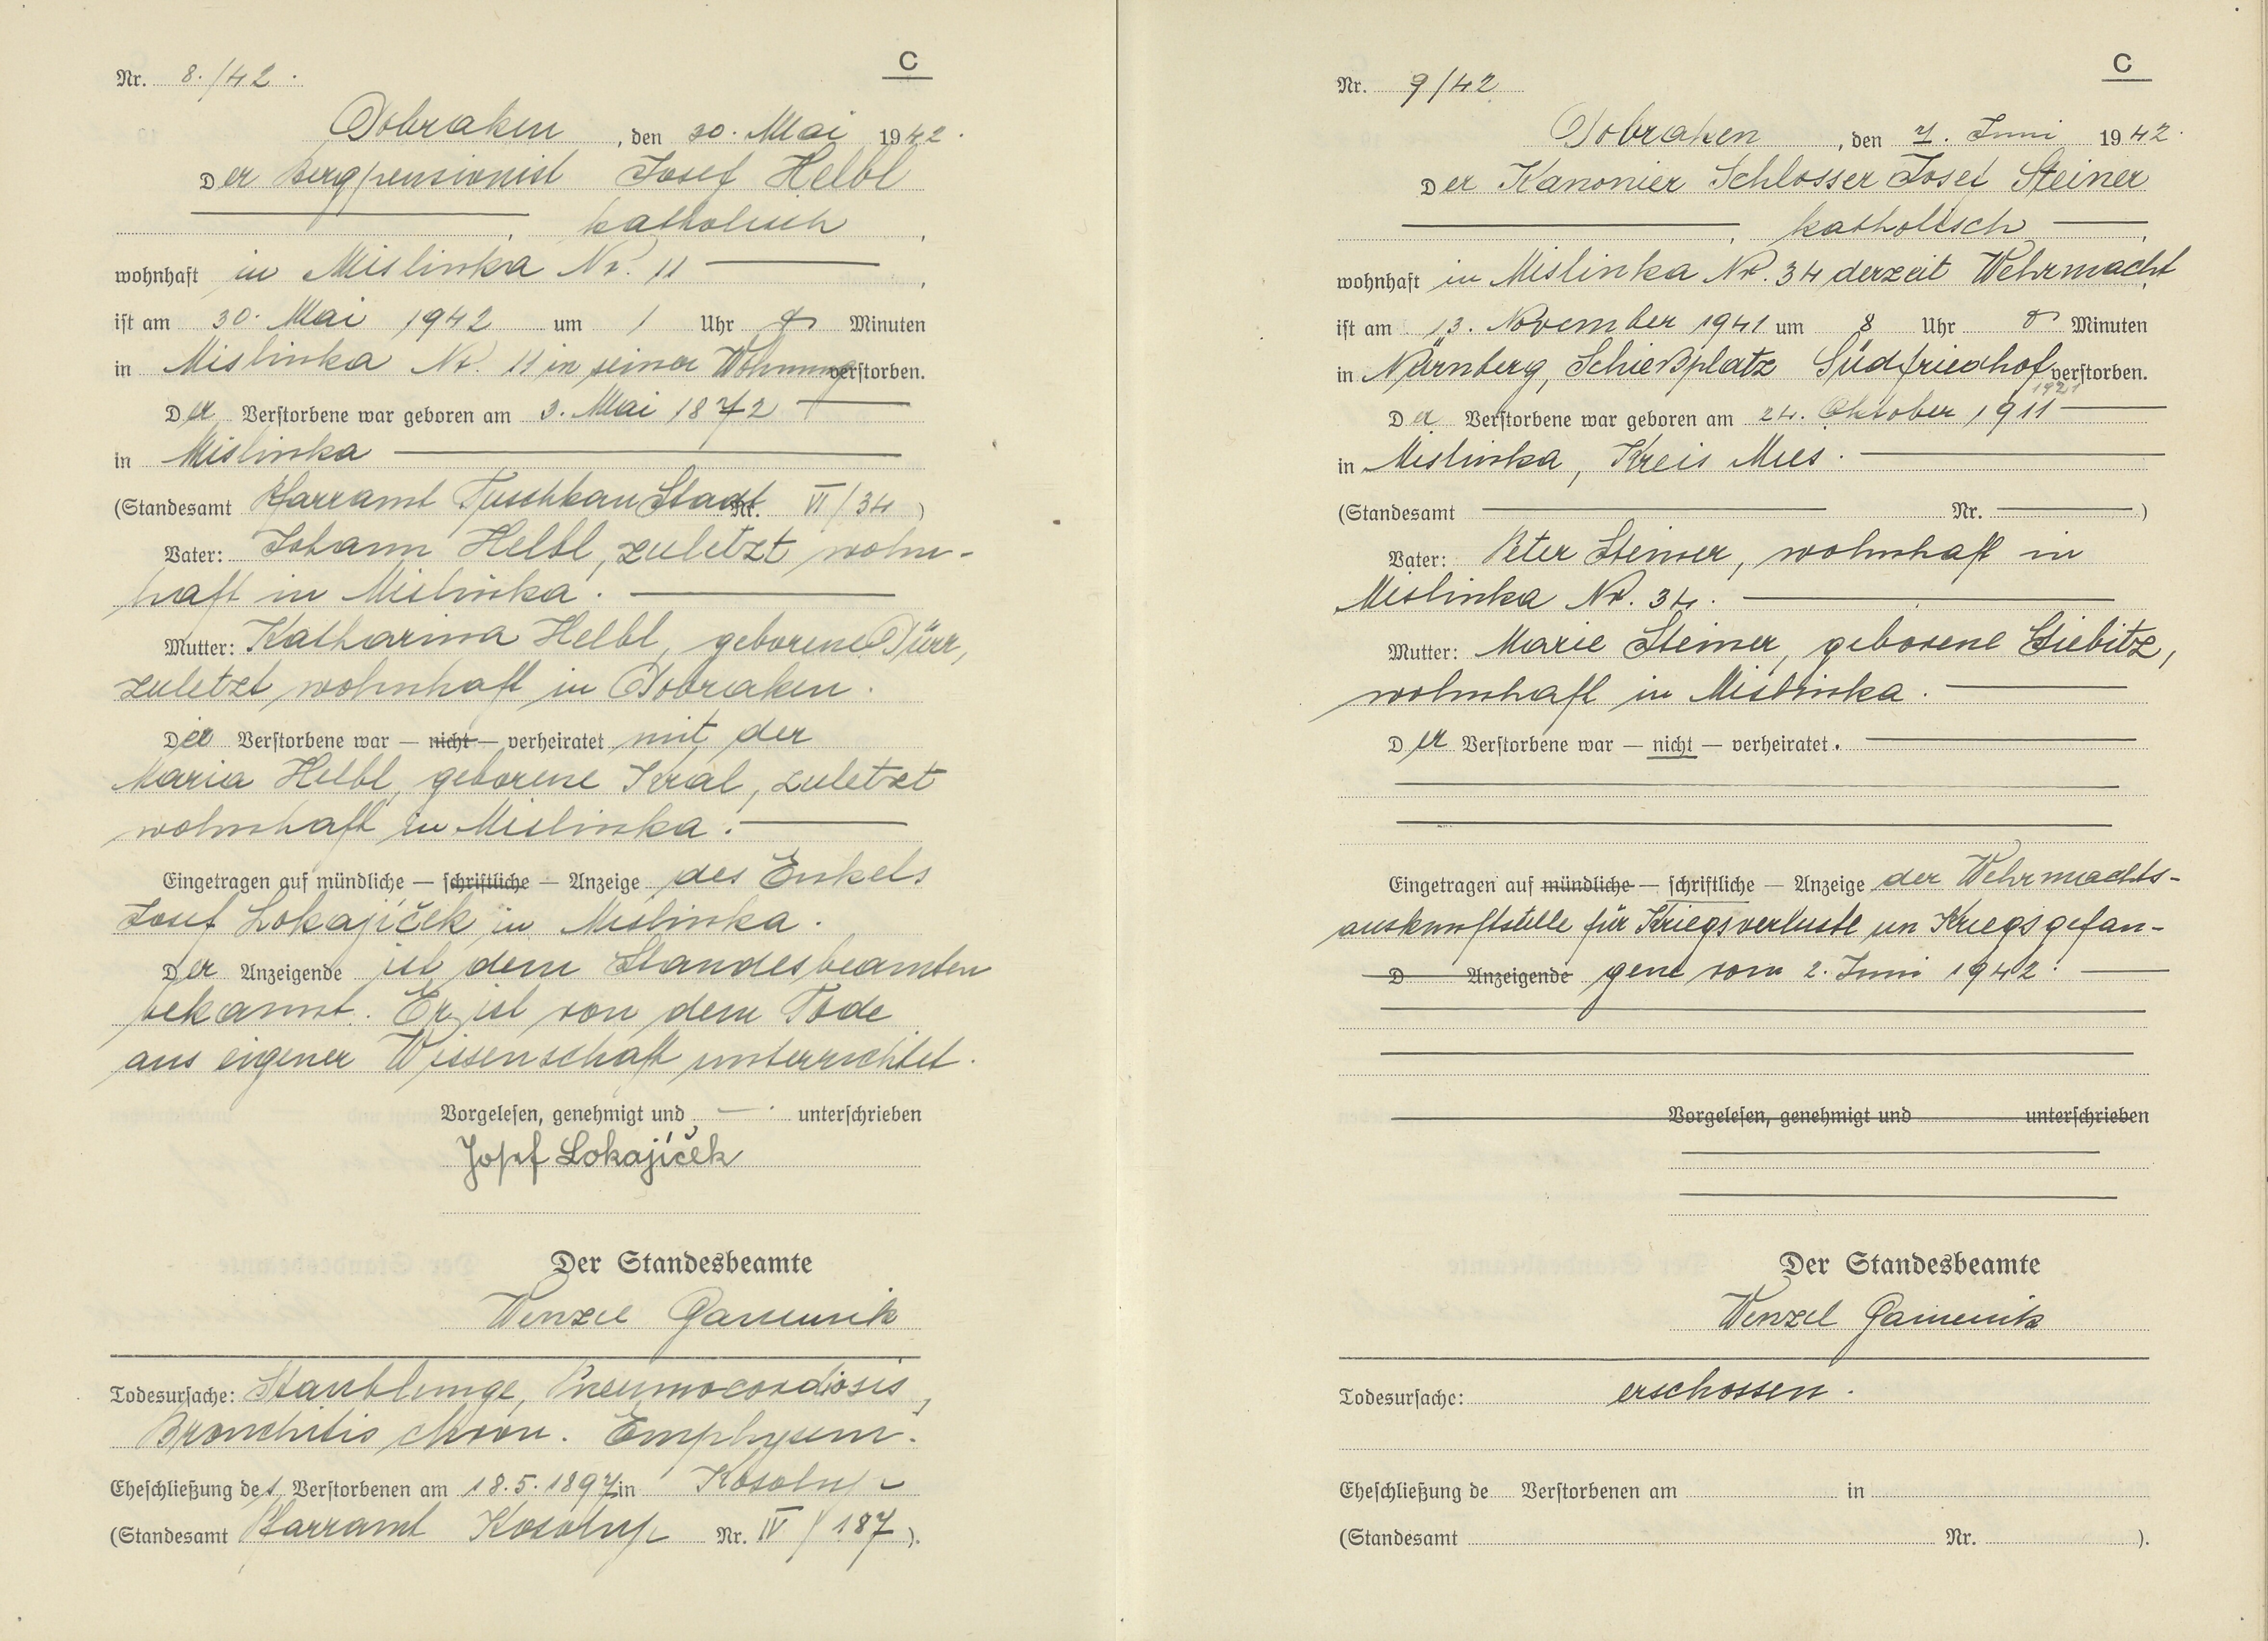 C
Nr. 8./42.
Dobraken, den 30. Mai 1942.
Der Bergpensionist Josef Helbl
, katholisch,
wohnhaft in Mislinka Nr. 11,
ist am 30. Mai 1942 um 1 Uhr Minuten
in Mislinka Nr. 11 in seiner Wohnung verstorben.
Der Verstorbene war geboren am 3. Mai 1872
in Mislinka
(Standesamt Pfarramt Tuschkau Stadt Nr. VI/34)
Vater: Johann Helbl, zuletzt wohn-
haft in Mislinka.
Mutter: Katharina Helbl, geborene Dürr,
zuletzt wohnhaft in Dobraken.
Der Verstorbene war — nicht — verheiratet mit der
Maria Helbl, geborene Kral, zuletzt
wohnhaft in Mislinka.
Eingetragen auf mündliche — schriftliche — Anzeige des Enkels
Josef Lokajíček in Mislinka.
Der Anzeigende ist dem Standesbeamten
bekannt. Er ist von dem Tode
aus eigener Wissenschaft unterrichtet.
Vorgelesen, genehmigt und — unterschrieben
Josef Lokajíček
Der Standesbeamte
Wenzel
Todesursache: Staublunge, Pneumocordiosis,
Bronchitis chron. Emphysem.
Eheschließung des Verstorbenen am 18.5.1897 in Kosolup
(Standesamt Pfarramt Kosolup Nr. IV/187).
C
Nr. 9/42
Dobraken, den 7. Juni 1942.
Der Kanonier Schlosser Josef Steiner
, katholisch,
wohnhaft in Mislinka Nr. 34 derzeit Wehrmacht,
ist am 13. November 1941 um 8 Uhr Minuten
in Nürnberg, Schießplatz Südfriedhof verstorben.
1921
Der Verstorbene war geboren am 24. Oktober 1911
in Mislinka, Kreis Mies.
(Standesamt Nr. )
Vater: Peter Steiner, wohnhaft in
Mislinka Nr. 34.
Mutter: Marie Steiner, geborene Stiebitz,
wohnhaft in Mislinka.
Der Verstorbene war — nicht — verheiratet.
Eingetragen auf mündliche — schriftliche — Anzeige der Wehrmachts-
auskunftstelle für Kriegsverluste un Kriegsgefan-
D Anzeigende gene vom 2. Juni 1942.
Vorgelesen, genehmigt und unterschrieben
Der Standesbeamte
Wenzel
Todesursache: erschossen.
Eheschließung de Verstorbenen am in
(Standesamt Nr. ).